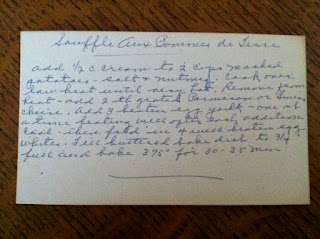 Souffle Aux Pommes de Terre
add 1/2 c cream to 2 cups mashed
potatoes. Salt & nutmeg. Cook over
low heat until very hot. Remove from
heat - add 2 tb grated Parmesan or
cheese. Add 3 beaten egg yolks - one at
a time beating well after each addition
then fold in 4 well beaten egg
whites. Fill buttered bake dish to 3/4
full and bake 375° for 30-35 min.